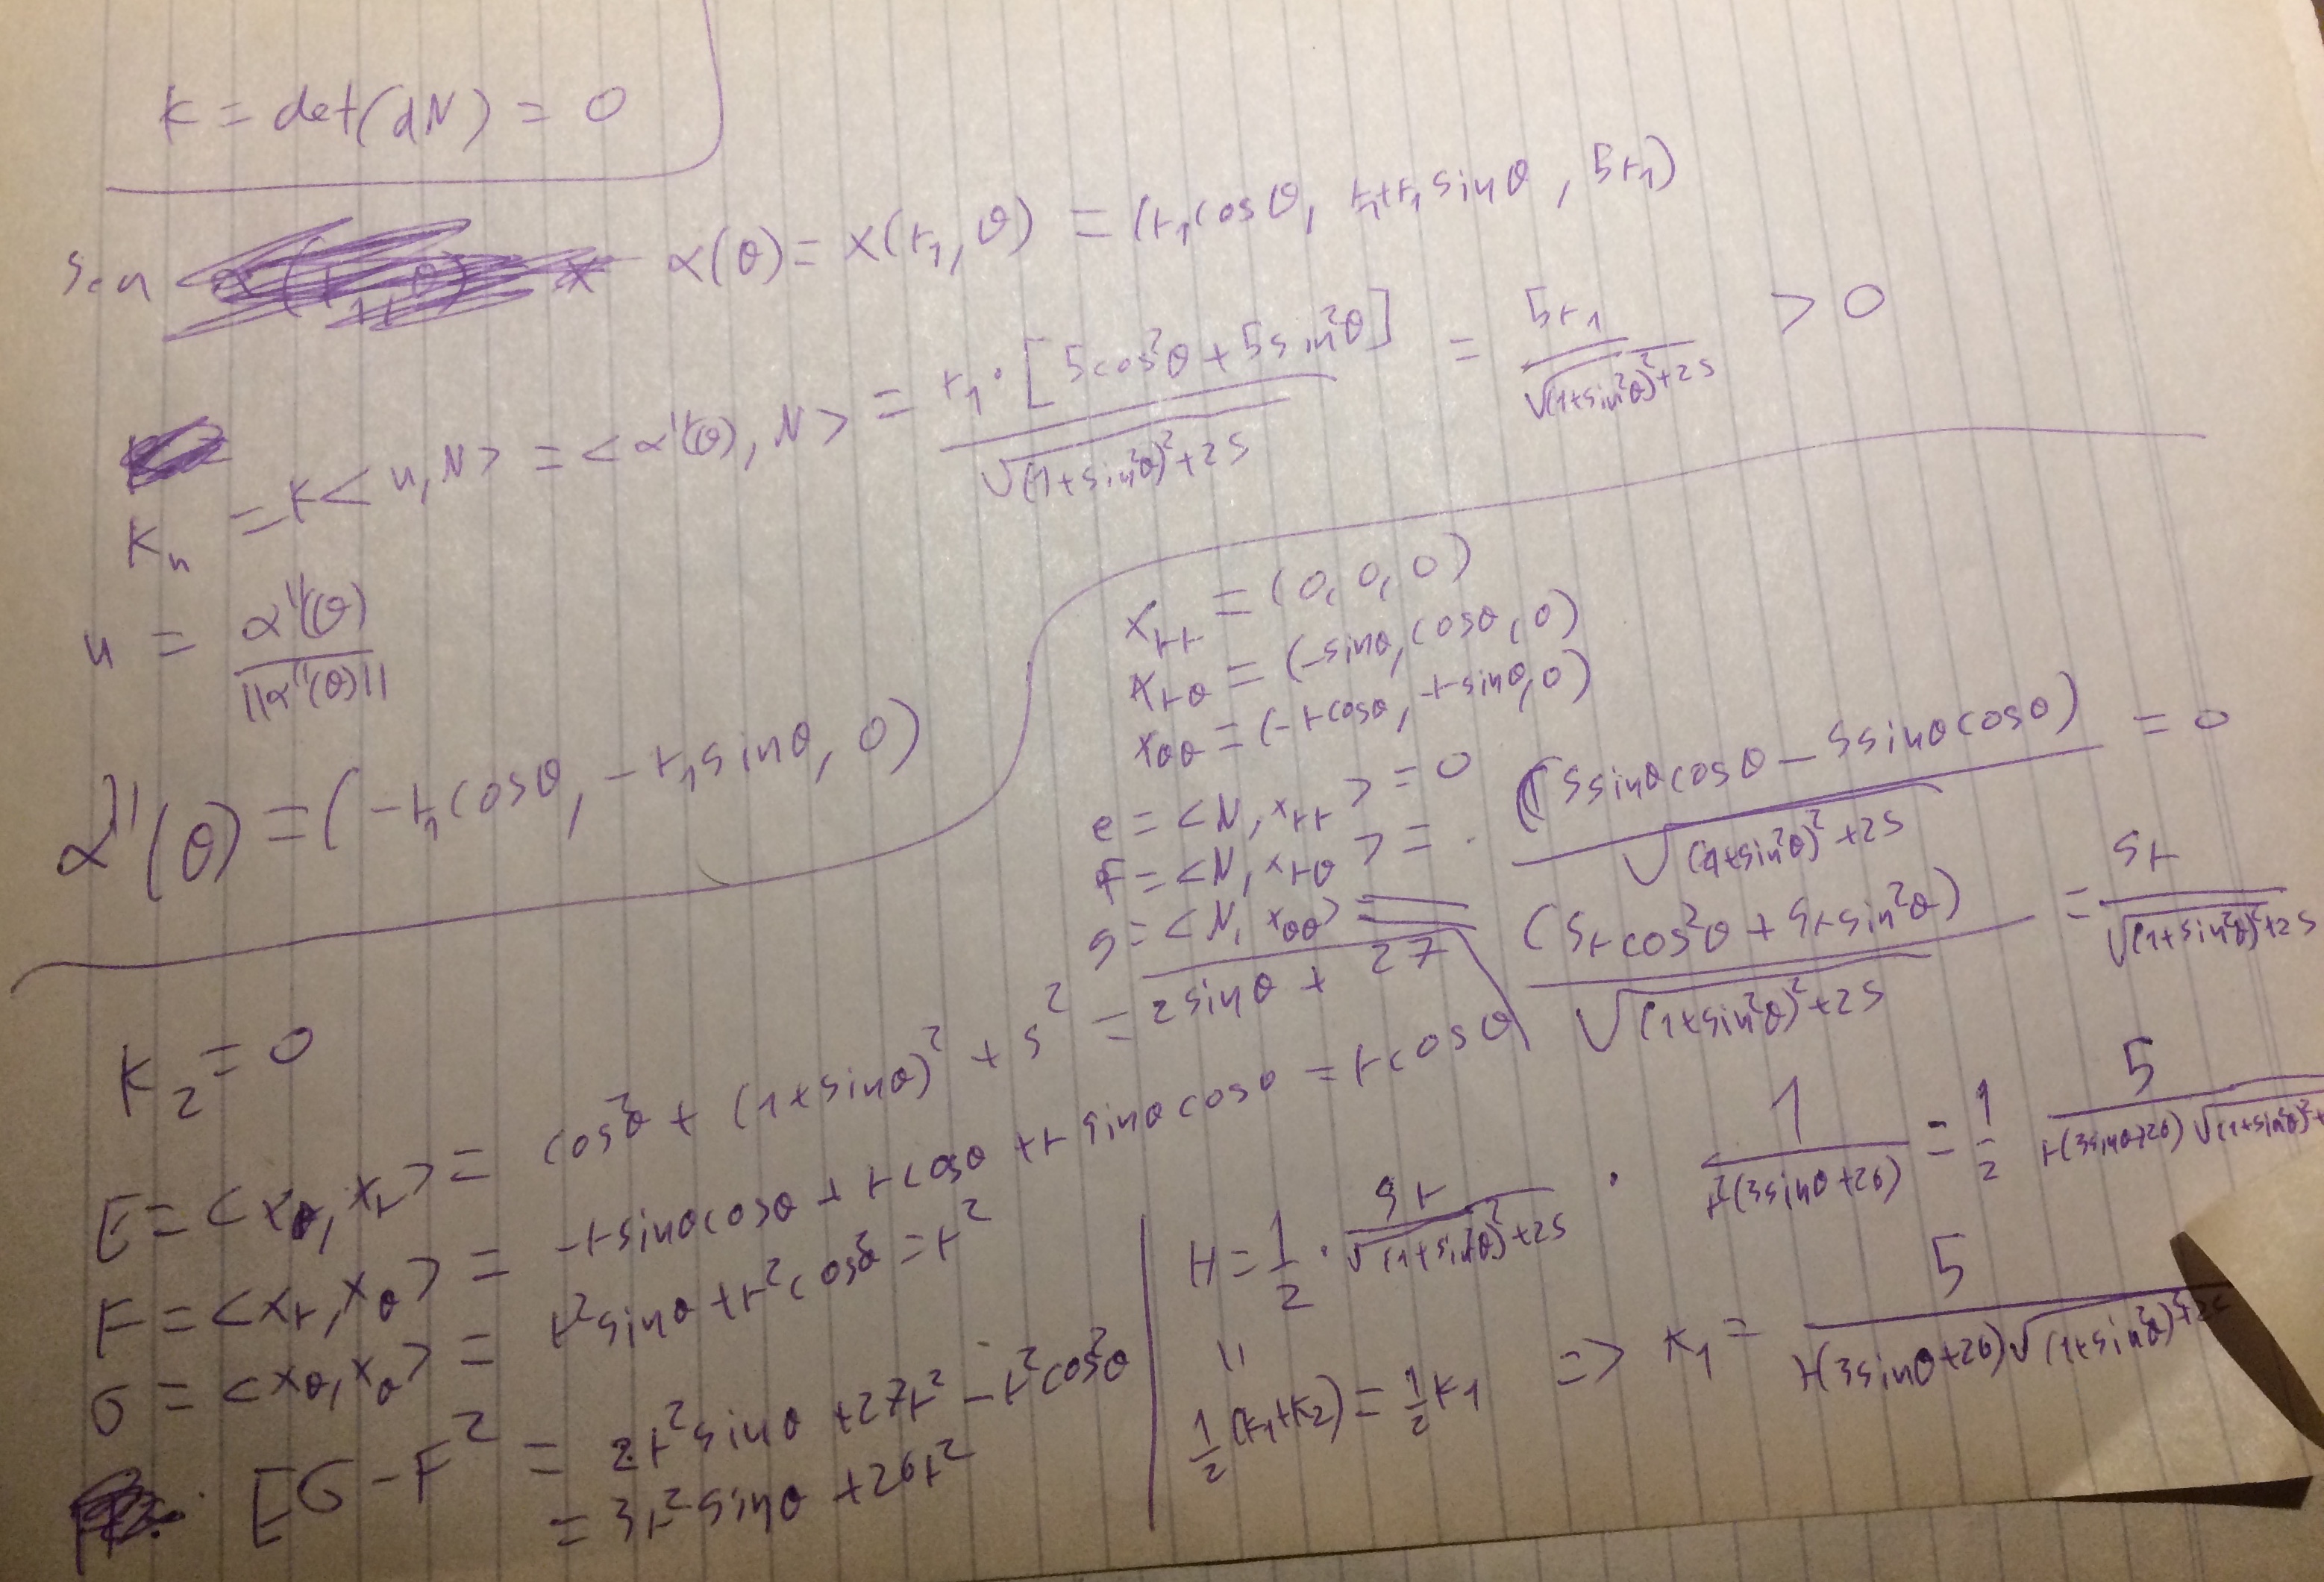 K = det(dN) = 0
Sea α(θ) = x(r₁, θ) = (r₁cosθ, r₁+r₁sinθ, 5r₁)
Kₙ = K<n, N> = <α''(θ), N> = r₁·[5cos²θ + 5sin²θ] / √((1+sin²θ)²+25) = 5r₁ / √((1+sin²θ)²+25) > 0
n = α''(θ) / ||α''(θ)||
α''(θ) = (-r₁cosθ, -r₁sinθ, 0)
x_rr = (0, 0, 0)
x_rθ = (-sinθ, cosθ, 0)
x_θθ = (-rcosθ, -rsinθ, 0)
e = <N, x_rr> = 0
f = <N, x_rθ> = (5sinθcosθ - 5sinθcosθ) / √((1+sin²θ)²+25) = 0
g = <N, x_θθ> = (5rcos²θ + 5rsin²θ) / √((1+sin²θ)²+25) = 5r / √((1+sin²θ)²+25)
K₂ = 0
E = <x_r, x_r> = cos²θ + (1+sinθ)² + 5² = 2sinθ + 27
F = <x_r, x_θ> = -rsinθcosθ + rcosθ + rsinθcosθ = rcosθ
G = <x_θ, x_θ> = r²sin²θ + r²cos²θ = r²
EG - F² = 2r²sinθ + 27r² - r²cos²θ
= 3r²sinθ + 26r²
H = 1/2 · 5r / √((1+sin²θ)²+25) · 1 / r²(3sinθ+26) = 1/2 5 / r(3sinθ+26)√((1+sin²θ)²+
"
1/2 (K₁+K₂) = 1/2 K₁ => K₁ = 5 / r(3sinθ+26)√((1+sin²θ)²+25